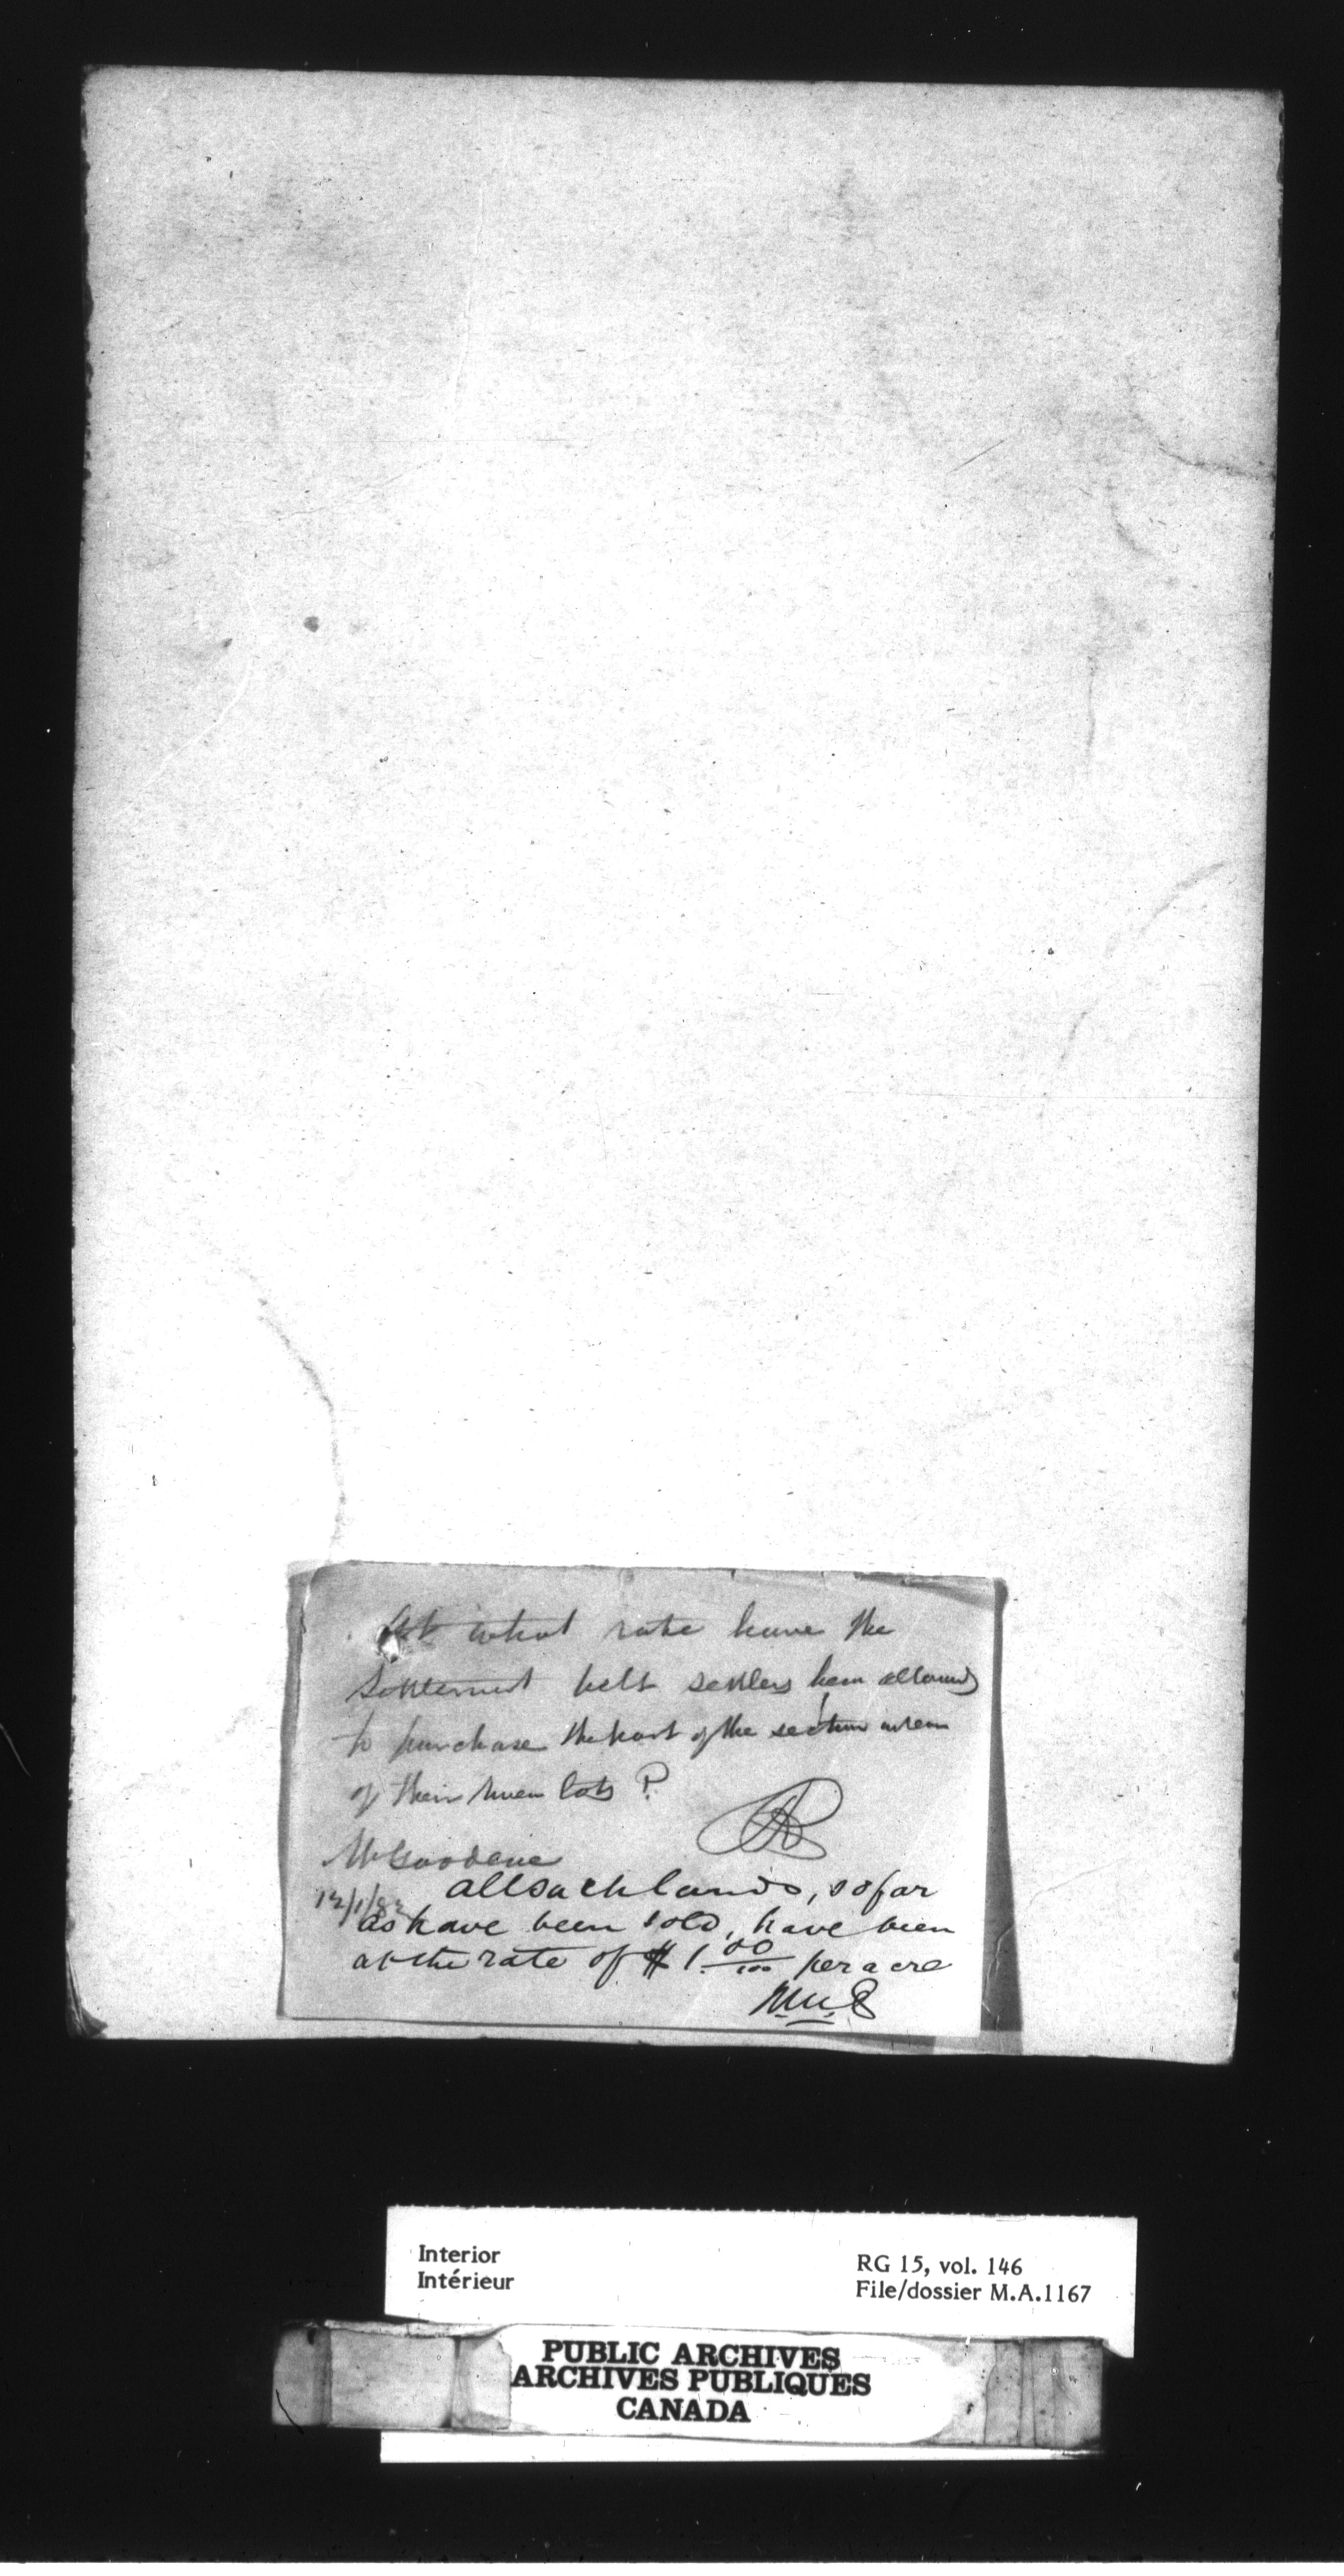 At what rate have the
Settlement belt settlers been allowed
to purchase the part of the section in rear
of their river lots ?
Mr Goodeve
12/1/82
all such lands, so far
as have been sold, have been
at the rate of $1.00/100 per acre
Interior
Intérieur
RG 15, vol. 146
File/dossier M.A.1167
PUBLIC ARCHIVES
ARCHIVES PUBLIQUES
CANADA